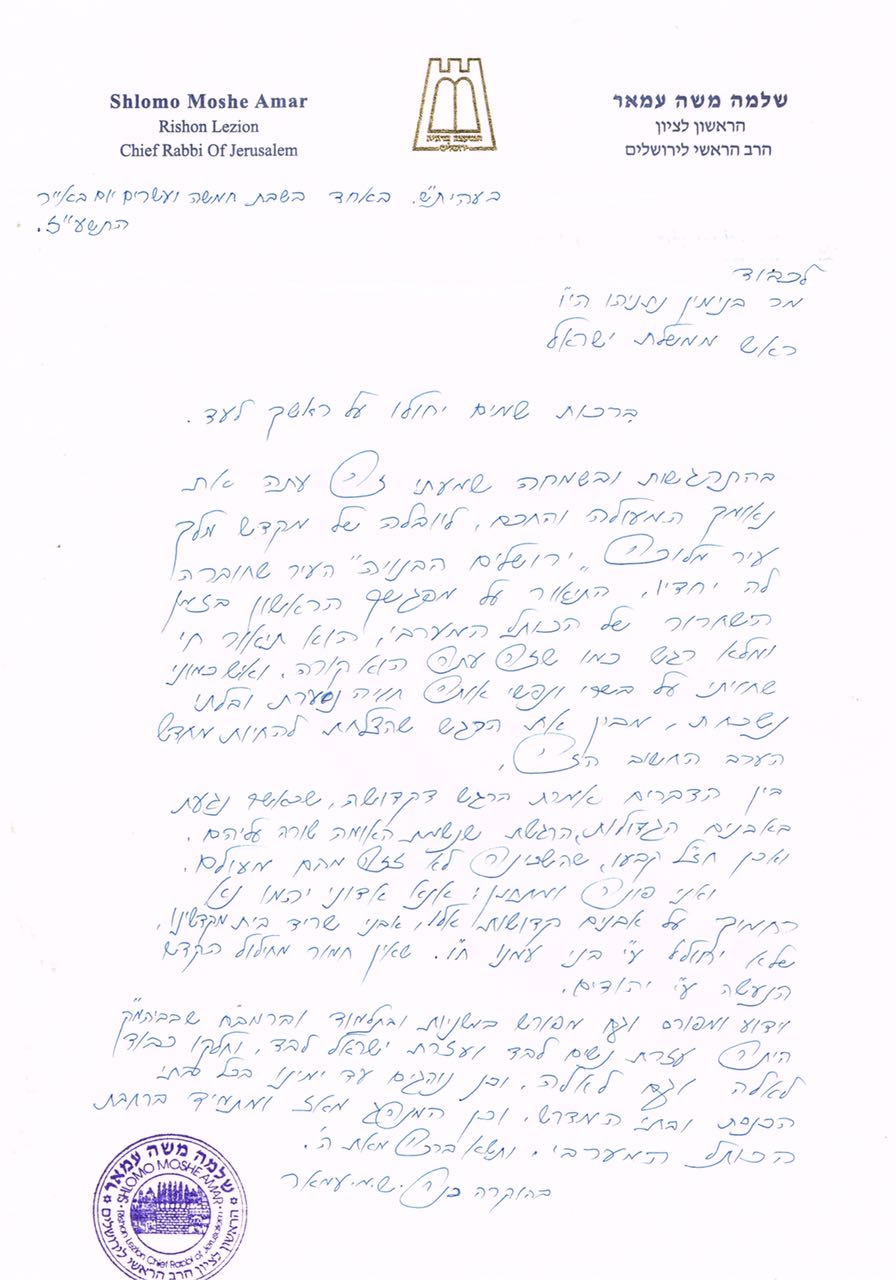 Shlomo Moshe Amar
Rishon Lezion
Chief Rabbi Of Jerusalem
המועצה הדתית
ירושלים
שלמה משה עמאר
הראשון לציון
הרב הראשי לירושלים
בעהית"ש. באחד בשבת חמשה ועשרים יום באייר
התשע"ז.
לכבוד
מר בנימין נתניהו הי"ו
ראש ממשלת ישראל
ברכות שמים יחולו על ראשך לעד.
בהתרגשות ובשמחה שמעתי זה עתה את
נאומך המעולה והחכם, ליובלה של מקדש מלך
עיר מלוכה "ירושלים הבנויה" העיר שחוברה
לה יחדיו, התיאור על מפגשך הראשון בזמן
השחרור של הכותל המערבי, הוא תיאור חי
ומלא רגש כמו שזה עתה הוא קורה. ואיש כמוני
שחויתי על בשרי ונפשי אותה חויה נסערת ובלתי
נשכחת, מבין את הרגש שהצלחת להחיות מחדש
הערב החשוב הזה,
בין הדברים אמרת ברגש דקדושה, שכאשר נגעת
באבנים הגדולות, הרגשת שנשמת האומה שורה עליהם.
ואכן חז"ל קבעו, שהשכינה לא זזה מהם מעולם.
ואני פונה ומתחנן: אנא אדוני יהמו נא
רחמיך על אבנים קדושות אלו, אבני שריד בית מקדשינו,
שלא יחולל ע"י בני עמנו ח"ו. שאין חמור מחילול הקדש
הנעשה ע"י יהודים.
וידוע ומפורסם וגם מפורש במשניות ובתלמוד וברמב"ם שבביהמ"ק
היתה עזרת נשים לבד ועזרת ישראל לבד, וחלקו כבוד
לאלה וגם לאלה, וכן נוהגים עד ימינו בכל בתי
הכנסת ובתי המדרש, וכן המנהג מאז ומתמיד ברחבת
הכותל המערבי, ותשא ברכה מאת ה'.
בהוקרה רבה ש.מ. עמאר
שלמה משה עמאר
SHLOMO MOSHE AMAR
Rishon Lezion Chief Rabbi of Jerusalem
הראשון לציון הרב הראשי לירושלים